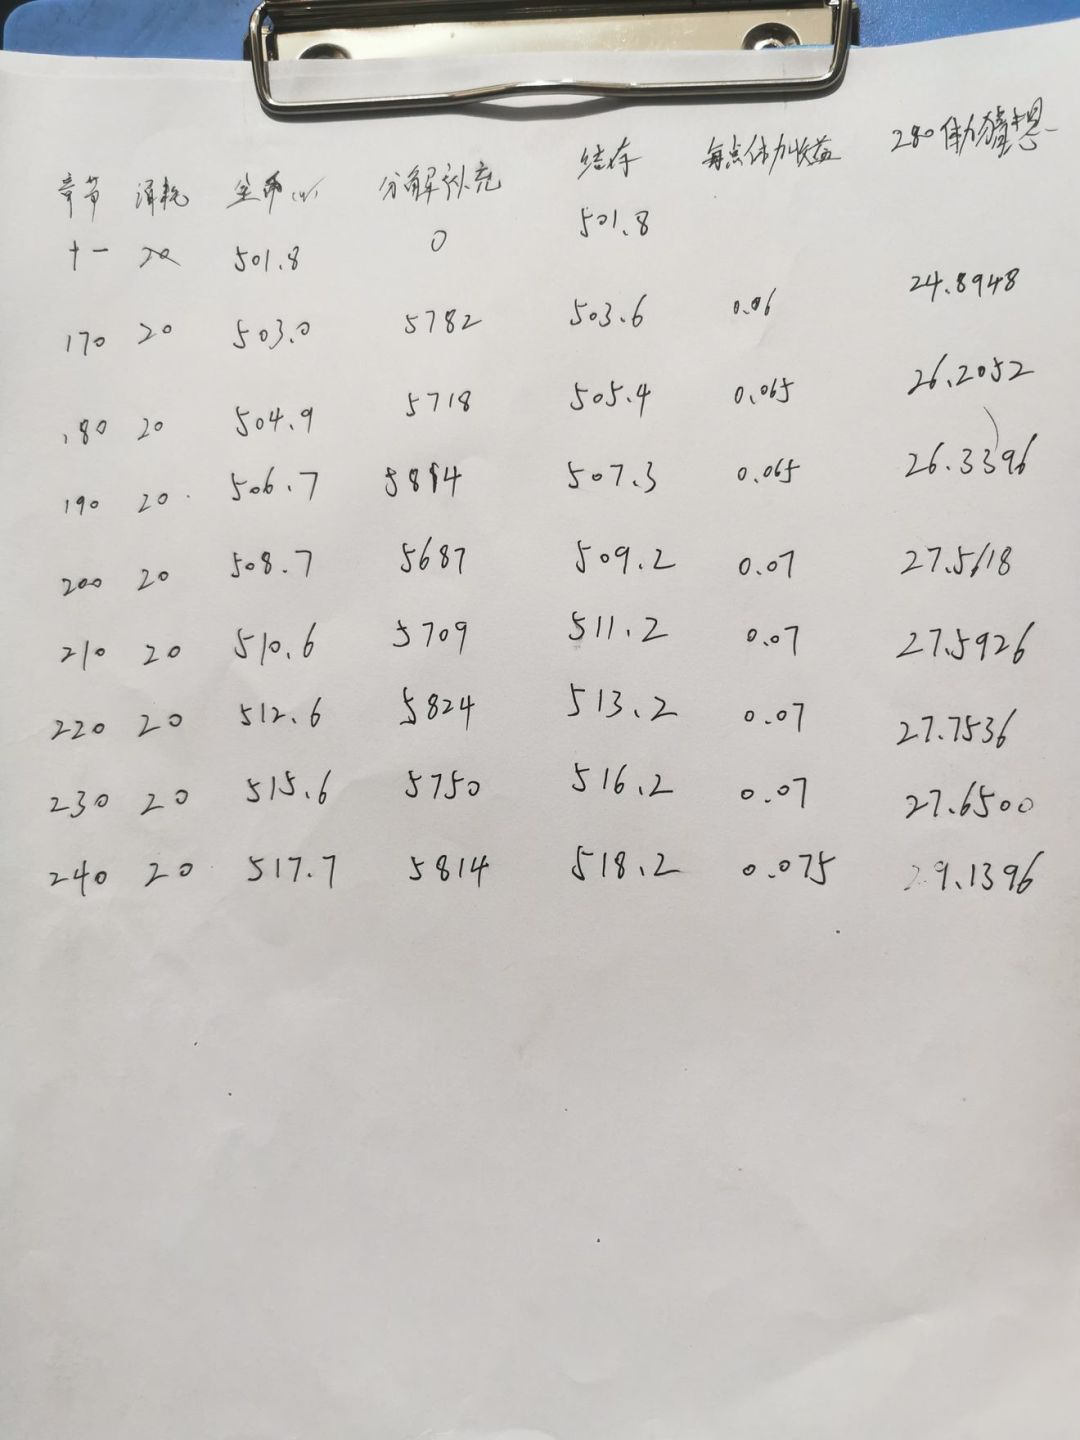 章节 消耗 金币(w) 分解补充 结存 每点体力收益 280体力猜想
十一 20 501.8 0 501.8
170 20 503.0 5782 503.6 0.06 24.8948
180 20 504.9 5718 505.4 0.065 26.2052
190 20 506.7 5814 507.3 0.065 26.3396
200 20 508.7 5687 509.2 0.07 27.5618
210 20 510.6 5709 511.2 0.07 27.5926
220 20 512.6 5824 513.2 0.07 27.7536
230 20 515.6 5750 516.2 0.07 27.6500
240 20 517.7 5814 518.2 0.075 29.1396